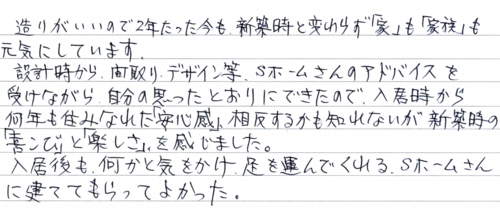 造りがいいので2年たった今も、新築時と変わらず「家」も「家族」も
元気にしています。
設計時から、間取り、デザイン等、Sホームさんのアドバイスを
受けながら、自分の思ったとおりにできたので、入居時から
何年も住みなれた「安心感」、相反するかも知れないが新築時の
「喜こび」と「楽しさ」を感じました。
入居後も、何かと気をかけ、足を運んでくれる、Sホームさん
に建ててもらってよかった。